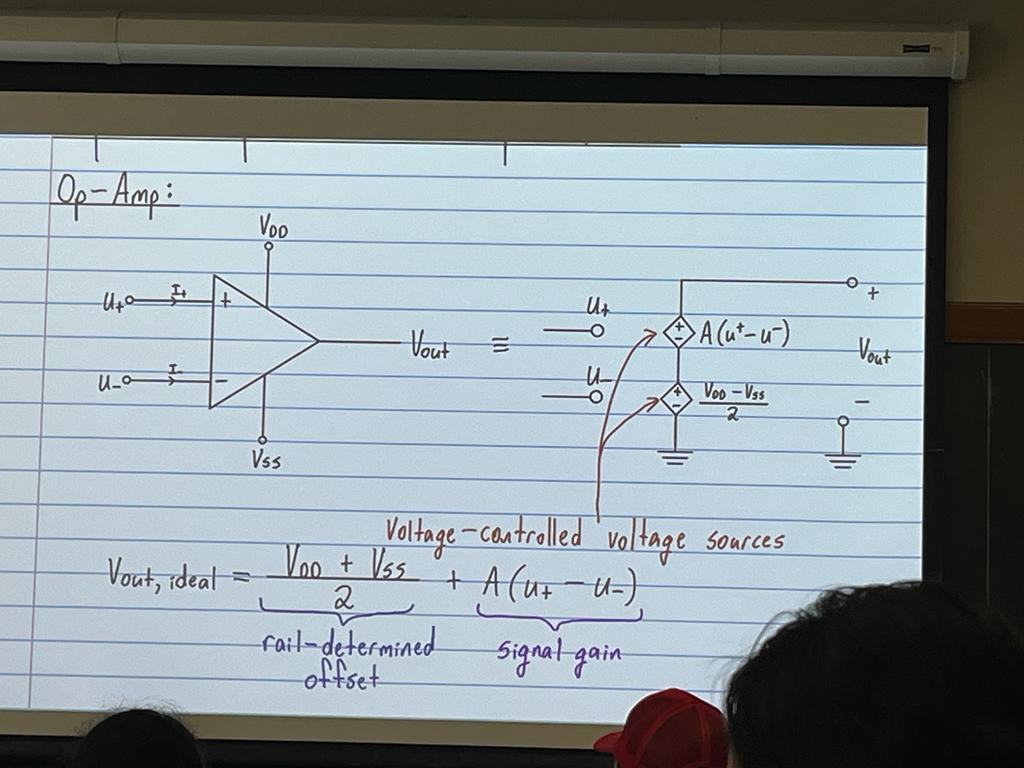 Op-Amp:
VDD
U+ I+ +
U- I- -
Vout
VSS
≡
U+
U-
+
-
A(u⁺-u⁻)
+
-
VDD - VSS
2
+
Vout
-
Voltage-controlled voltage sources
Vout, ideal = VDD + VSS / 2 + A(u+ - u-)
rail-determined offset
signal gain